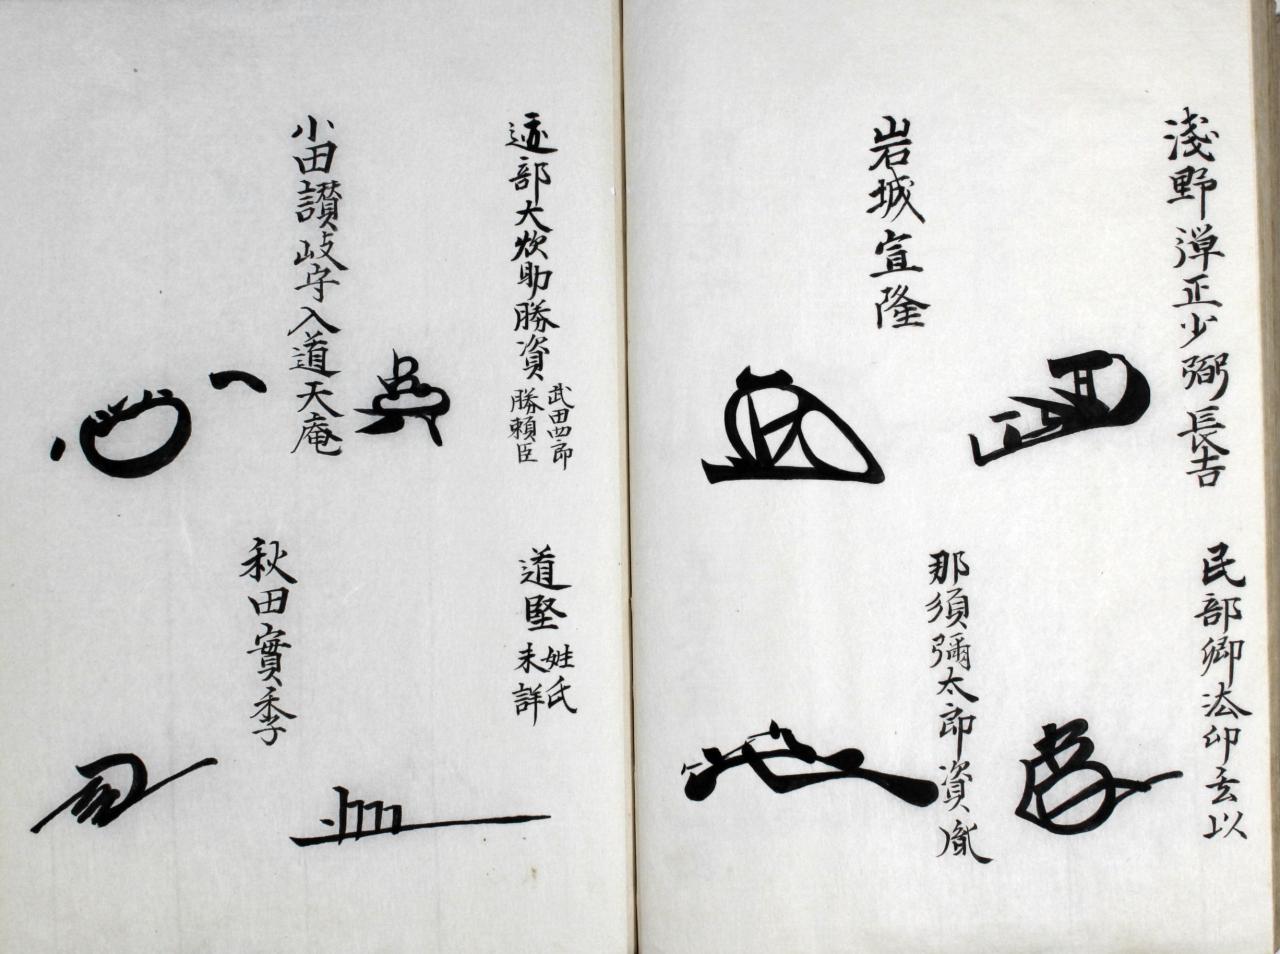 淺野弾正少弼長吉
民部卿法印玄以
岩城宣隆
那須彌太郎資胤
部大炊助勝資
武田四郎
勝頼臣
道堅
姓氏
未詳
小田讃岐守入道天庵
秋田實季